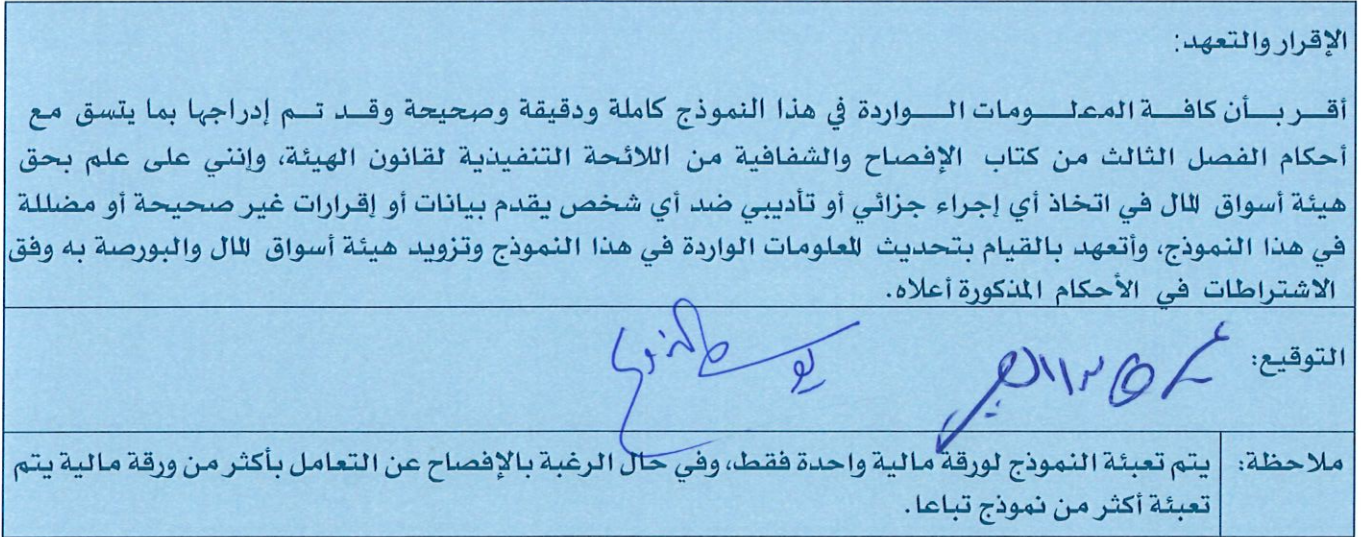 الإقرار والتعهد:
أقـــر بـــأن كافـــة المعلـــومات الـــواردة في هذا النموذج كاملة ودقيقة وصحيحة وقـــد تـــم إدراجها بما يتسق مع
أحكام الفصل الثالث من كتاب الإفصاح والشفافية من اللائحة التنفيذية لقانون الهيئة، وإنني على علم بحق
هيئة أسواق المال في اتخاذ أي إجراء جزائي أو تأديبي ضد أي شخص يقدم بيانات أو إقرارات غير صحيحة أو مضللة
في هذا النموذج، وأتعهد بالقيام بتحديث المعلومات الواردة في هذا النموذج وتزويد هيئة أسواق المال والبورصة به وفق
الاشتراطات في الأحكام المذكورة أعلاه.
التوقيع:
ملاحظة: يتم تعبئة النموذج لورقة مالية واحدة فقط، وفي حال الرغبة بالإفصاح عن التعامل بأكثر من ورقة مالية يتم
تعبئة أكثر من نموذج تباعا.